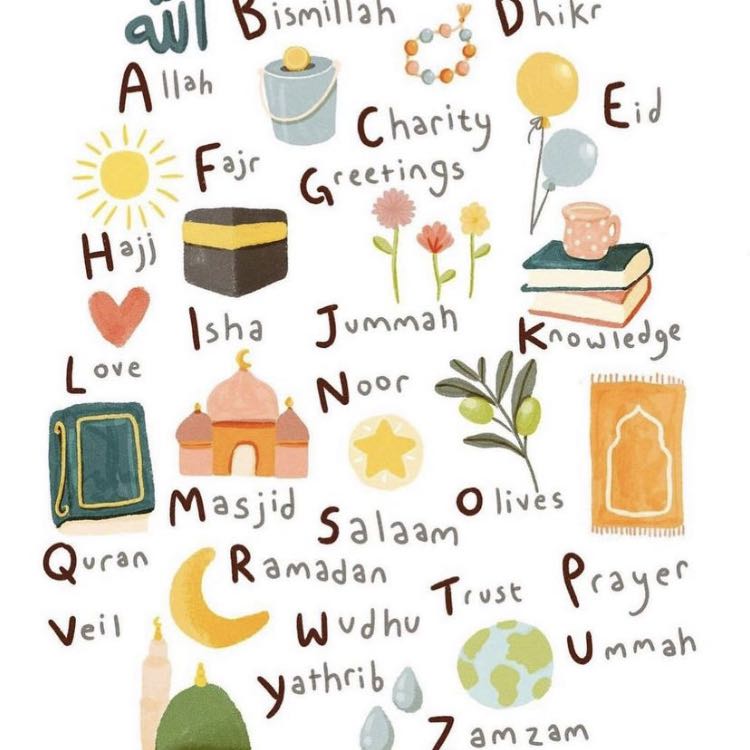 الله
Bismillah
Dhikr
Allah
Charity
Eid
Fajr
Greetings
Hajj
Isha
Jummah
Knowledge
Love
Noor
Masjid
Salaam
Olives
Quran
Ramadan
Trust
Prayer
Veil
Wudhu
Ummah
Yathrib
Zamzam